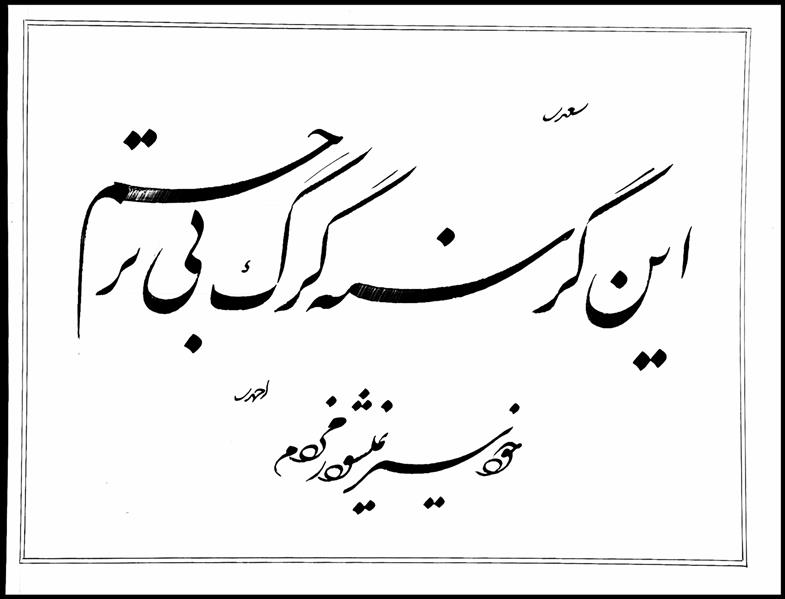 سعدی
این گرسنه گرگ بی ترحم
خود سیر نمیشود ز مردم